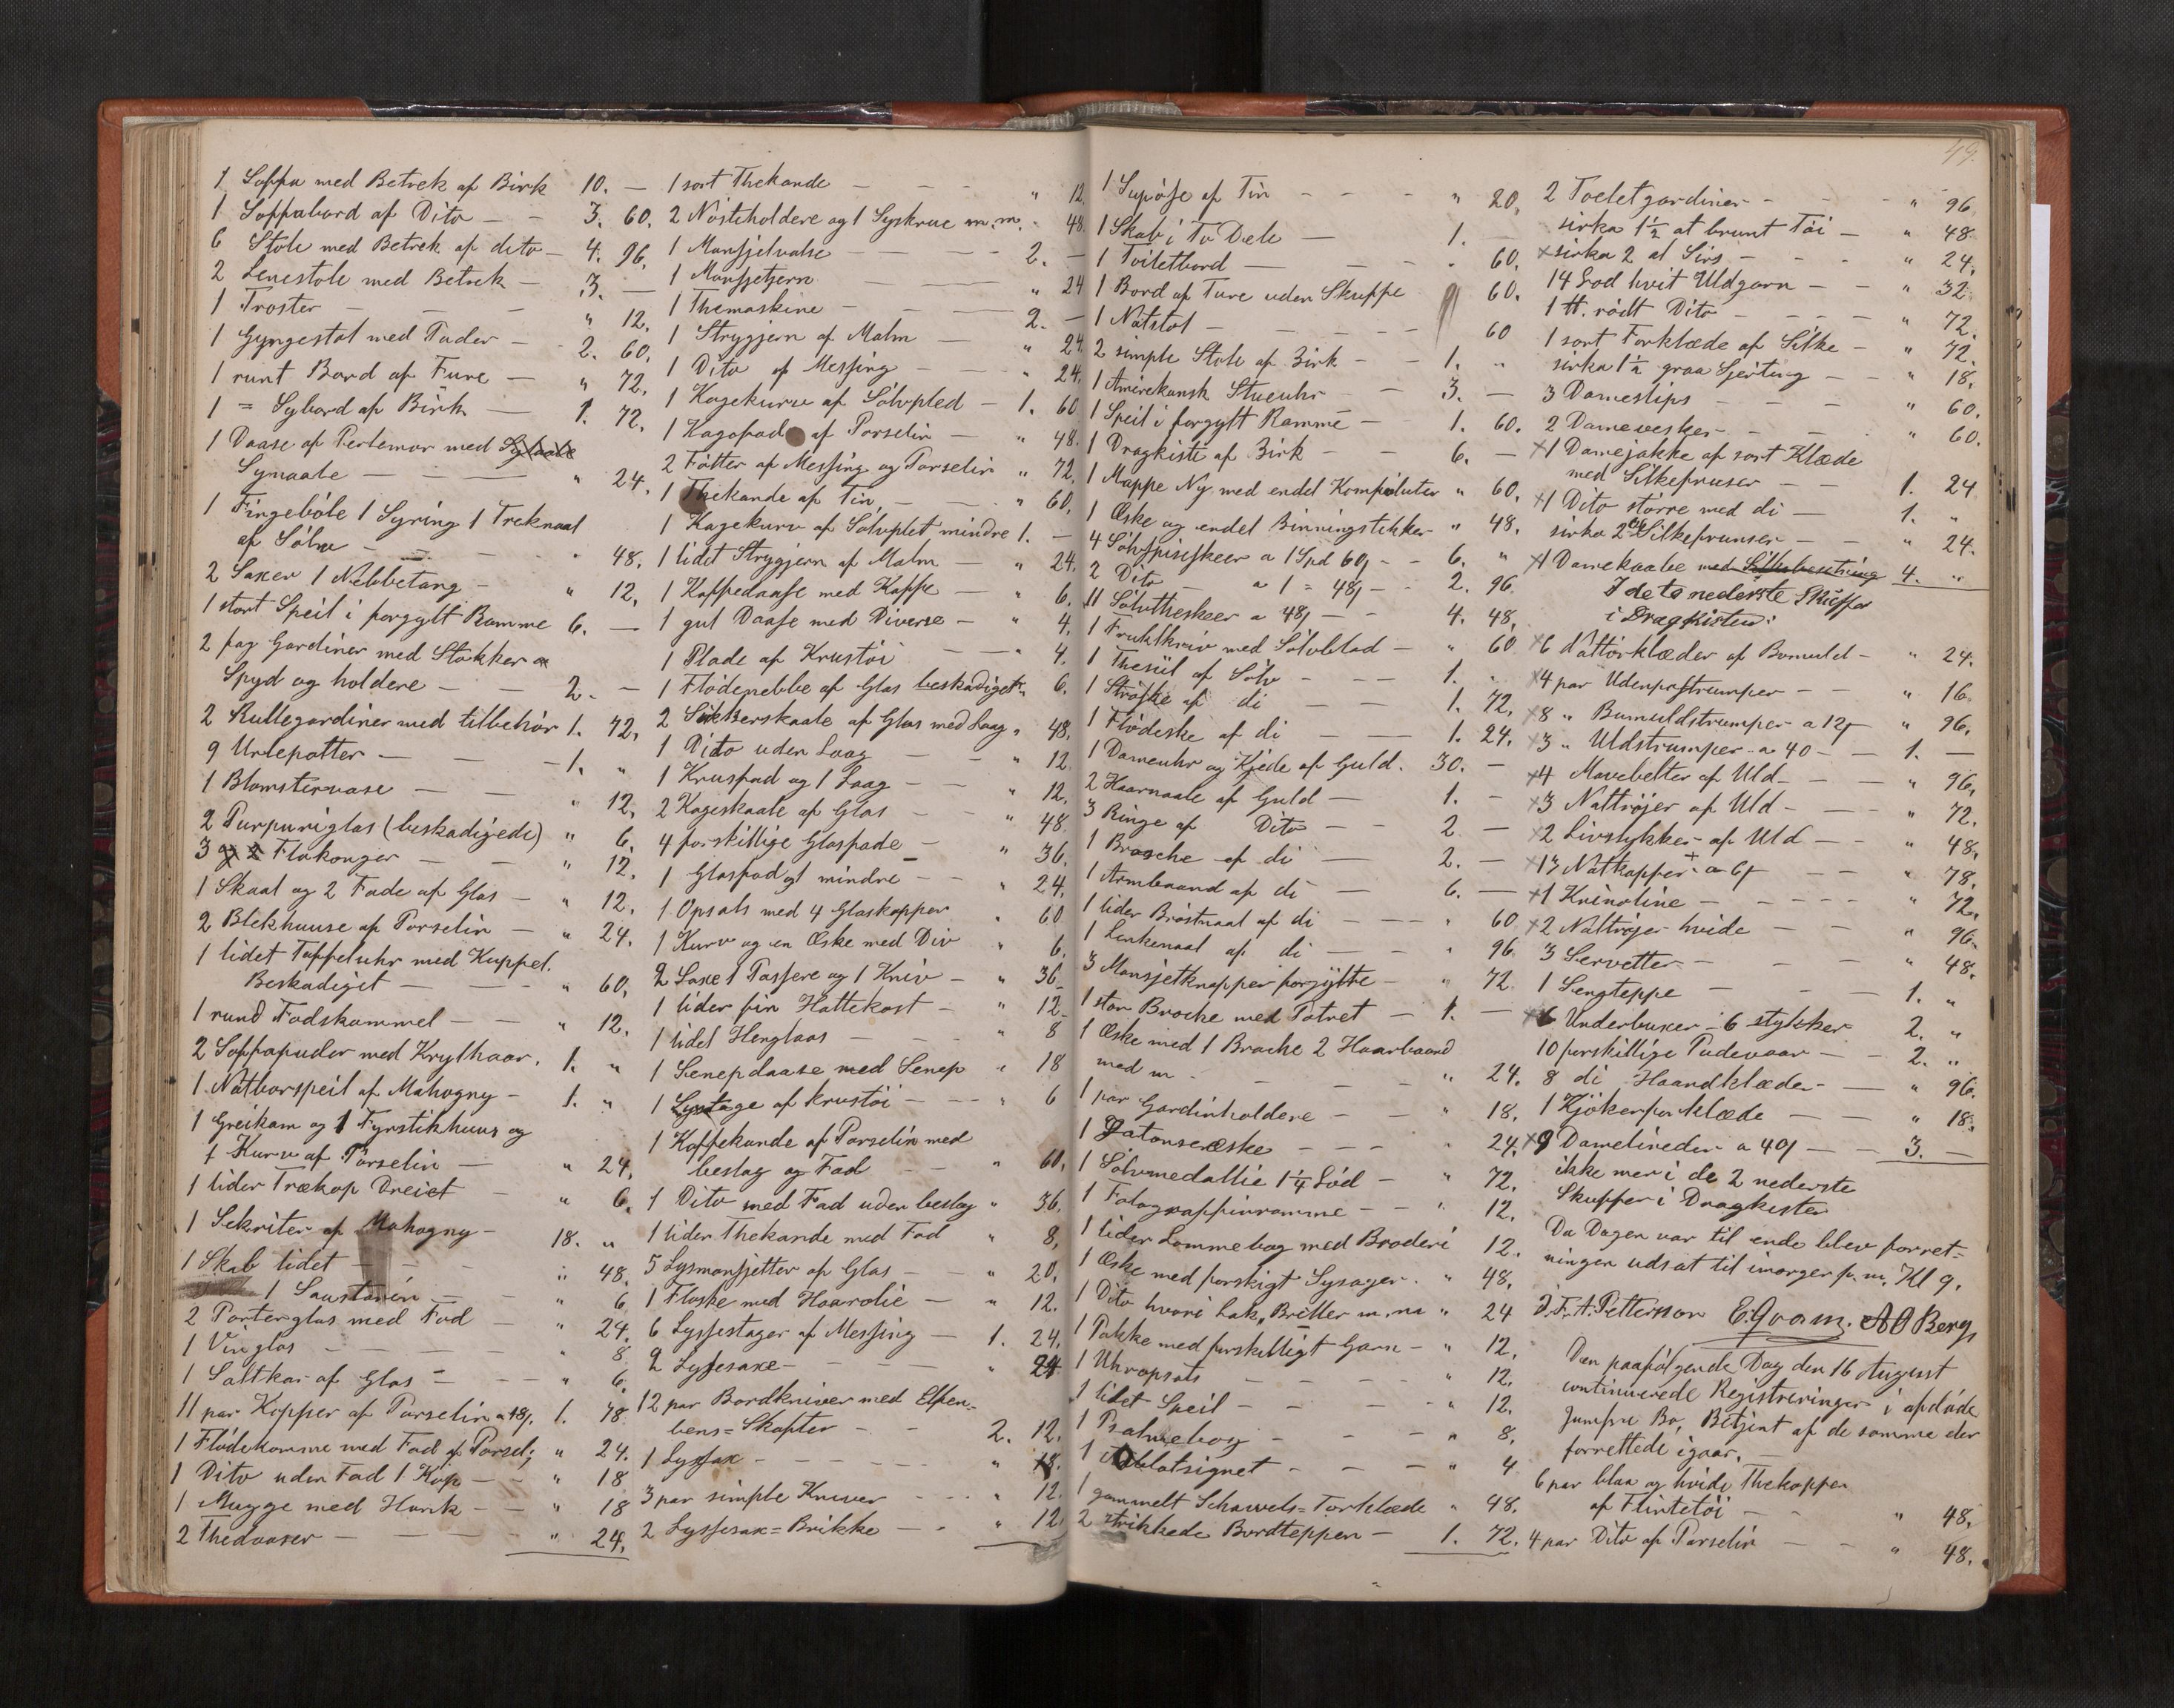 1 Soffa med Betrek af Birk 10. —
1 Soffabord af Dito — - 3. 60.
6 Stole med Betrek af dito — 4. 96.
2 Lenestole med Betrek — 3. —
1 Troster — — — " 12.
1 Gyngestol med Puder — - 2. 60.
1 runt Bord af Fure — " 72.
1 = Sybord af Birk — 1. 72.
1 Daase af Perlemor med
Synaale — — " 24.
1 Fingebøle 1 Syring 1 Treknaal
af Sølv — — - " 48.
2 Saxer 1 Nebbetang - " 12.
1 stort Speil i forgylt Ramme 6. —
2 fag Gardiner med Stokker
Spyd og holdere — — 2. —
2 Rullegardiner med tilbehør 1. 72.
9 Urtepotter — — — 1. "
1 Blomstervase — — " 12.
2 Purpuriglas (beskadigede) " 6.
3 Flakonger — — " 12.
1 Skaal og 2 Fade af Glas — " 12.
2 Blekhuuse af Porselin — " 24.
1 lidet Taffeluhr med Kuppel.
Beskadiget — — - " 60.
1 rund Fodskammel — — " 12.
2 Soffapuder med Krylhaar. 1. "
1 Natborspeil af Mahogny - 1. "
1 Greikam og 1 Fyrstikhuus og
1 Kurv af Porselin — " 24.
1 liden Trækop Dreiet - " 6.
1 Sekriter af Mahogny - 18. "
1 Skab lidet — - - " 48.
1 — - " 6.
2 Porterglas med Fod — " 24.
1 Vinglas — — — " 8.
1 Saltkar af Glas — — " 6.
11 par Kopper af Porselin a 18/. 1. 78.
1 Flødekanne med Fad af Porsel; " 24.
1 Dito uden Fad 1 Kop — - " 18
1 Mugge med Hank — - " 18
2 Thedaaser — — — " 24.
1 sort Thekande — - — " 12
2 Nøsteholdere og 1 Syskrue m.m. - 48.
1 Mansjetvalse — — - 2. —
1 Mansjetjern — — " 24
1 Themaskine — — 2. —
1 Strygjern af Malm — " 24.
1 Dito af Messing — - " 24.
1 Kagekurv af Sølvpled — 1. 60
1 Kagefad af Porselin — " 48.
2 Føtter af Messing og Porselin " 72.
1 Thekande af Tin — - " 60.
1 Kagekurv af Sølvplet mindre 1. —
1 lidet Strygjern af Malm — " 24.
1 Kaffedaase med Kaffe — " 6.
1 gul Daase med Diverse — " 4.
1 Plade af Krustøi — — " 4.
1 Flødenebbe af Glas beskadiget " 6.
2 Sukkerskaale af Glas med Laag " 48.
1 Dito uden Laag — - " 12.
1 Krusfad og 1 Laag — - " 12.
2 Kageskaale af Glas — " 48
4 forskillige Glasfade — " 36.
1 Glasfad mindre — - " 24.
1 Opsats med 4 Glaskopper " 60
1 Kurv og en Æske med Div " 6.
2 Saxe 1 Passere og 1 Kniv — " 36
1 liden fin Hattekost — " 12
1 lidet Henglaas — - " 8
1 Senepdaase med Senep " 18
1 af krustøi — - " 6
1 Kaffekande af Porselin med
beslag og Fad — - " 60.
1 Dito med Fad uden beslag " 36.
1 liden Thekande med Fad " 8.
5 Lysmansjetter af Glas — " 20.
1 Flaske med Haarolie — " 12.
6 Lyssestager af Messing — 1. 24.
2 Lyssesaxe — — - " 24
12 par Bordkniver med Elfen-
bens=Skafter — - 2. 12.
1 Lyssax — - - - " 18.
3 par simple Kniver - - " 12.
2 Lyssesax=Brikke - - " 12.
49.
1 af Tin - - - " 20.
1 Skab i To Dele — 1. -
1 Toiletbord — - - " 60.
1 Bord af Fure uden Skuffe " 60.
1 Natstol - - - - 60
2 simple Stole af Birk - - 1. "
1 Amerekansk Stueuhr - 3. —
1 Speil i forgylt Ramme - 1. 60.
1 Dragkiste af Birk - - 6. —
1 Mappe Ny med endel Konvoluter " 60.
1 Æske og endel Binningstikker " 48.
4 Sølvspiseskeer a 1 Spd 60/ - - 6. "
2 Dito a 1 = 48/ - 2. 96.
11 Sølvtheskeer a 48/ — - 4. 48.
1 Fruktkniv med Sølvblad — " 60
1 Thesiil af Sølv - - 1. "
1 Strøske af di — — 1. 72.
1 Flødeske af di — — 1. 24.
1 Dameuhr og Kjede af Guld. 30. -
2 Haarnaale af Guld — 1. -
3 Ringe af Dito — - 2 —
1 Brosche af di — 2. —
1 Armbaand af di — 6. —
1 liden Brøstnaal af di - - - " 60
1 Lenkenaal af di — - " 96
3 Mansjetknapper forgylte — " 72
1 stor Brocke med Potret — 1. —
1 Æske med 1 Brocke 2 Haarbaand
med m - - - - " 24.
1 par Gardinholdere — - " 18.
1 Patonseæske — - - " 24.
1 Sølvmedallie 1¼ Lod — " 72.
1 Fotograffiramme - - " 12.
1 liden Lommebog med Broderi 12.
1 Æske med forskigt Sysager. " 48.
1 Dito hvori Lak, Briller m.m " 24
1 Pakke med forskelligt Garn - " 12.
1 Uhropsats — - - " 12.
1 lidet Speil — - - - " 12.
1 Psalmebog - - - " 8.
1 Oblatsignet - - - " 4
1 gammelt Schawels=Torklæde " 48.
2 strikkede Bordtepper — 1. 72.
2 Toeletgardiner - - - " 96.
sirka 1½ al brunt Tøi — " 48
×sirka 2 al Sirs - - - " 24.
14 Lod hvit Uldgarn - - " 32
1 ℔. rødt Dito - - - - " 72.
1 sort Forklæde af Silke — " 72.
sirka 1½ graa Sjerting - " 18.
3 Dameslips - - - " 60.
2 Damevesker - - - " 60.
×1 Damejakke af sort Klæde
med Silkefruser — - 1. 24
×1 Dito større med di — 1. "
sirka 2 al Silkefrunser - - " 24.
×1 Damekaabe med Silkebesetning 4. "
I de to nederste Skuffer
i Dragkisten:
×6 af Bomuld — " 24.
×4 par - - " 16.
×8 " Bumuldstrumper a 12/ " 96.
×3 " Uldstrumper a 40 — — 1. —
×4 Mavebelter af Uld - — " 96.
×3 Nattrøjer af Uld — - " 72.
×2 Livstykker af Uld — - " 48.
×13 Natkapper a 6/ - " 78.
×1 Krinoline — - - - - " 72.
×2 Nattrøjer hvide — - " 96.
3 Servetter - - - " 48.
1 Sengteppe - - — 1. "
×6 Underbuxer - 6 stykker 2. "
10 forskillige Pudevaar — - 2. "
8 di Haandklæde - — " 96.
1 Kjøkenforklæde — — " 18.
×9 Damelineder a 40/ — - 3. —
ikke mer i de 2 nederste
Skuffer i Dragkisten
Da Dagen var til ende blev forret-
ningen udsat til imorgen f.m. Kl 9.
J. F. A. Petterson E. Qvam. A O Berg
Den paafølgende Dag den 16 August
continuerede Registreringen i afdøde
Jumfru Bo, Betjent af de samme der
forrettede igaar. —
6 par blaa og hvide Thekopper
af Flintetøi - - " 48.
4 par Dito af Porselin — - " 48.